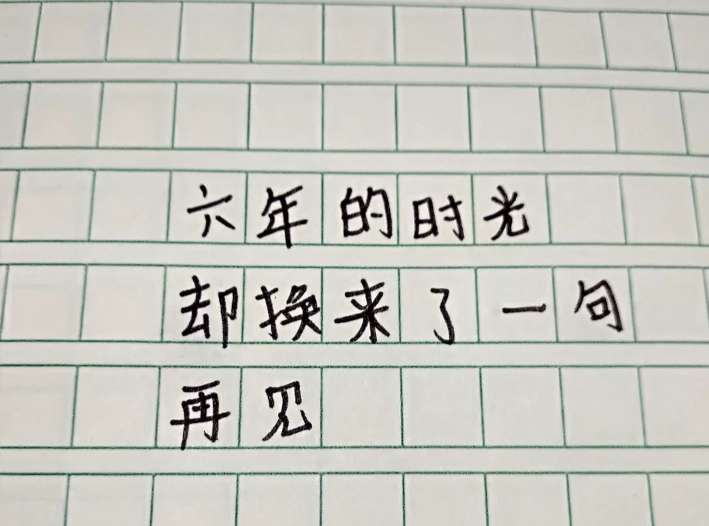 六年的时光
却换来了一句
再见